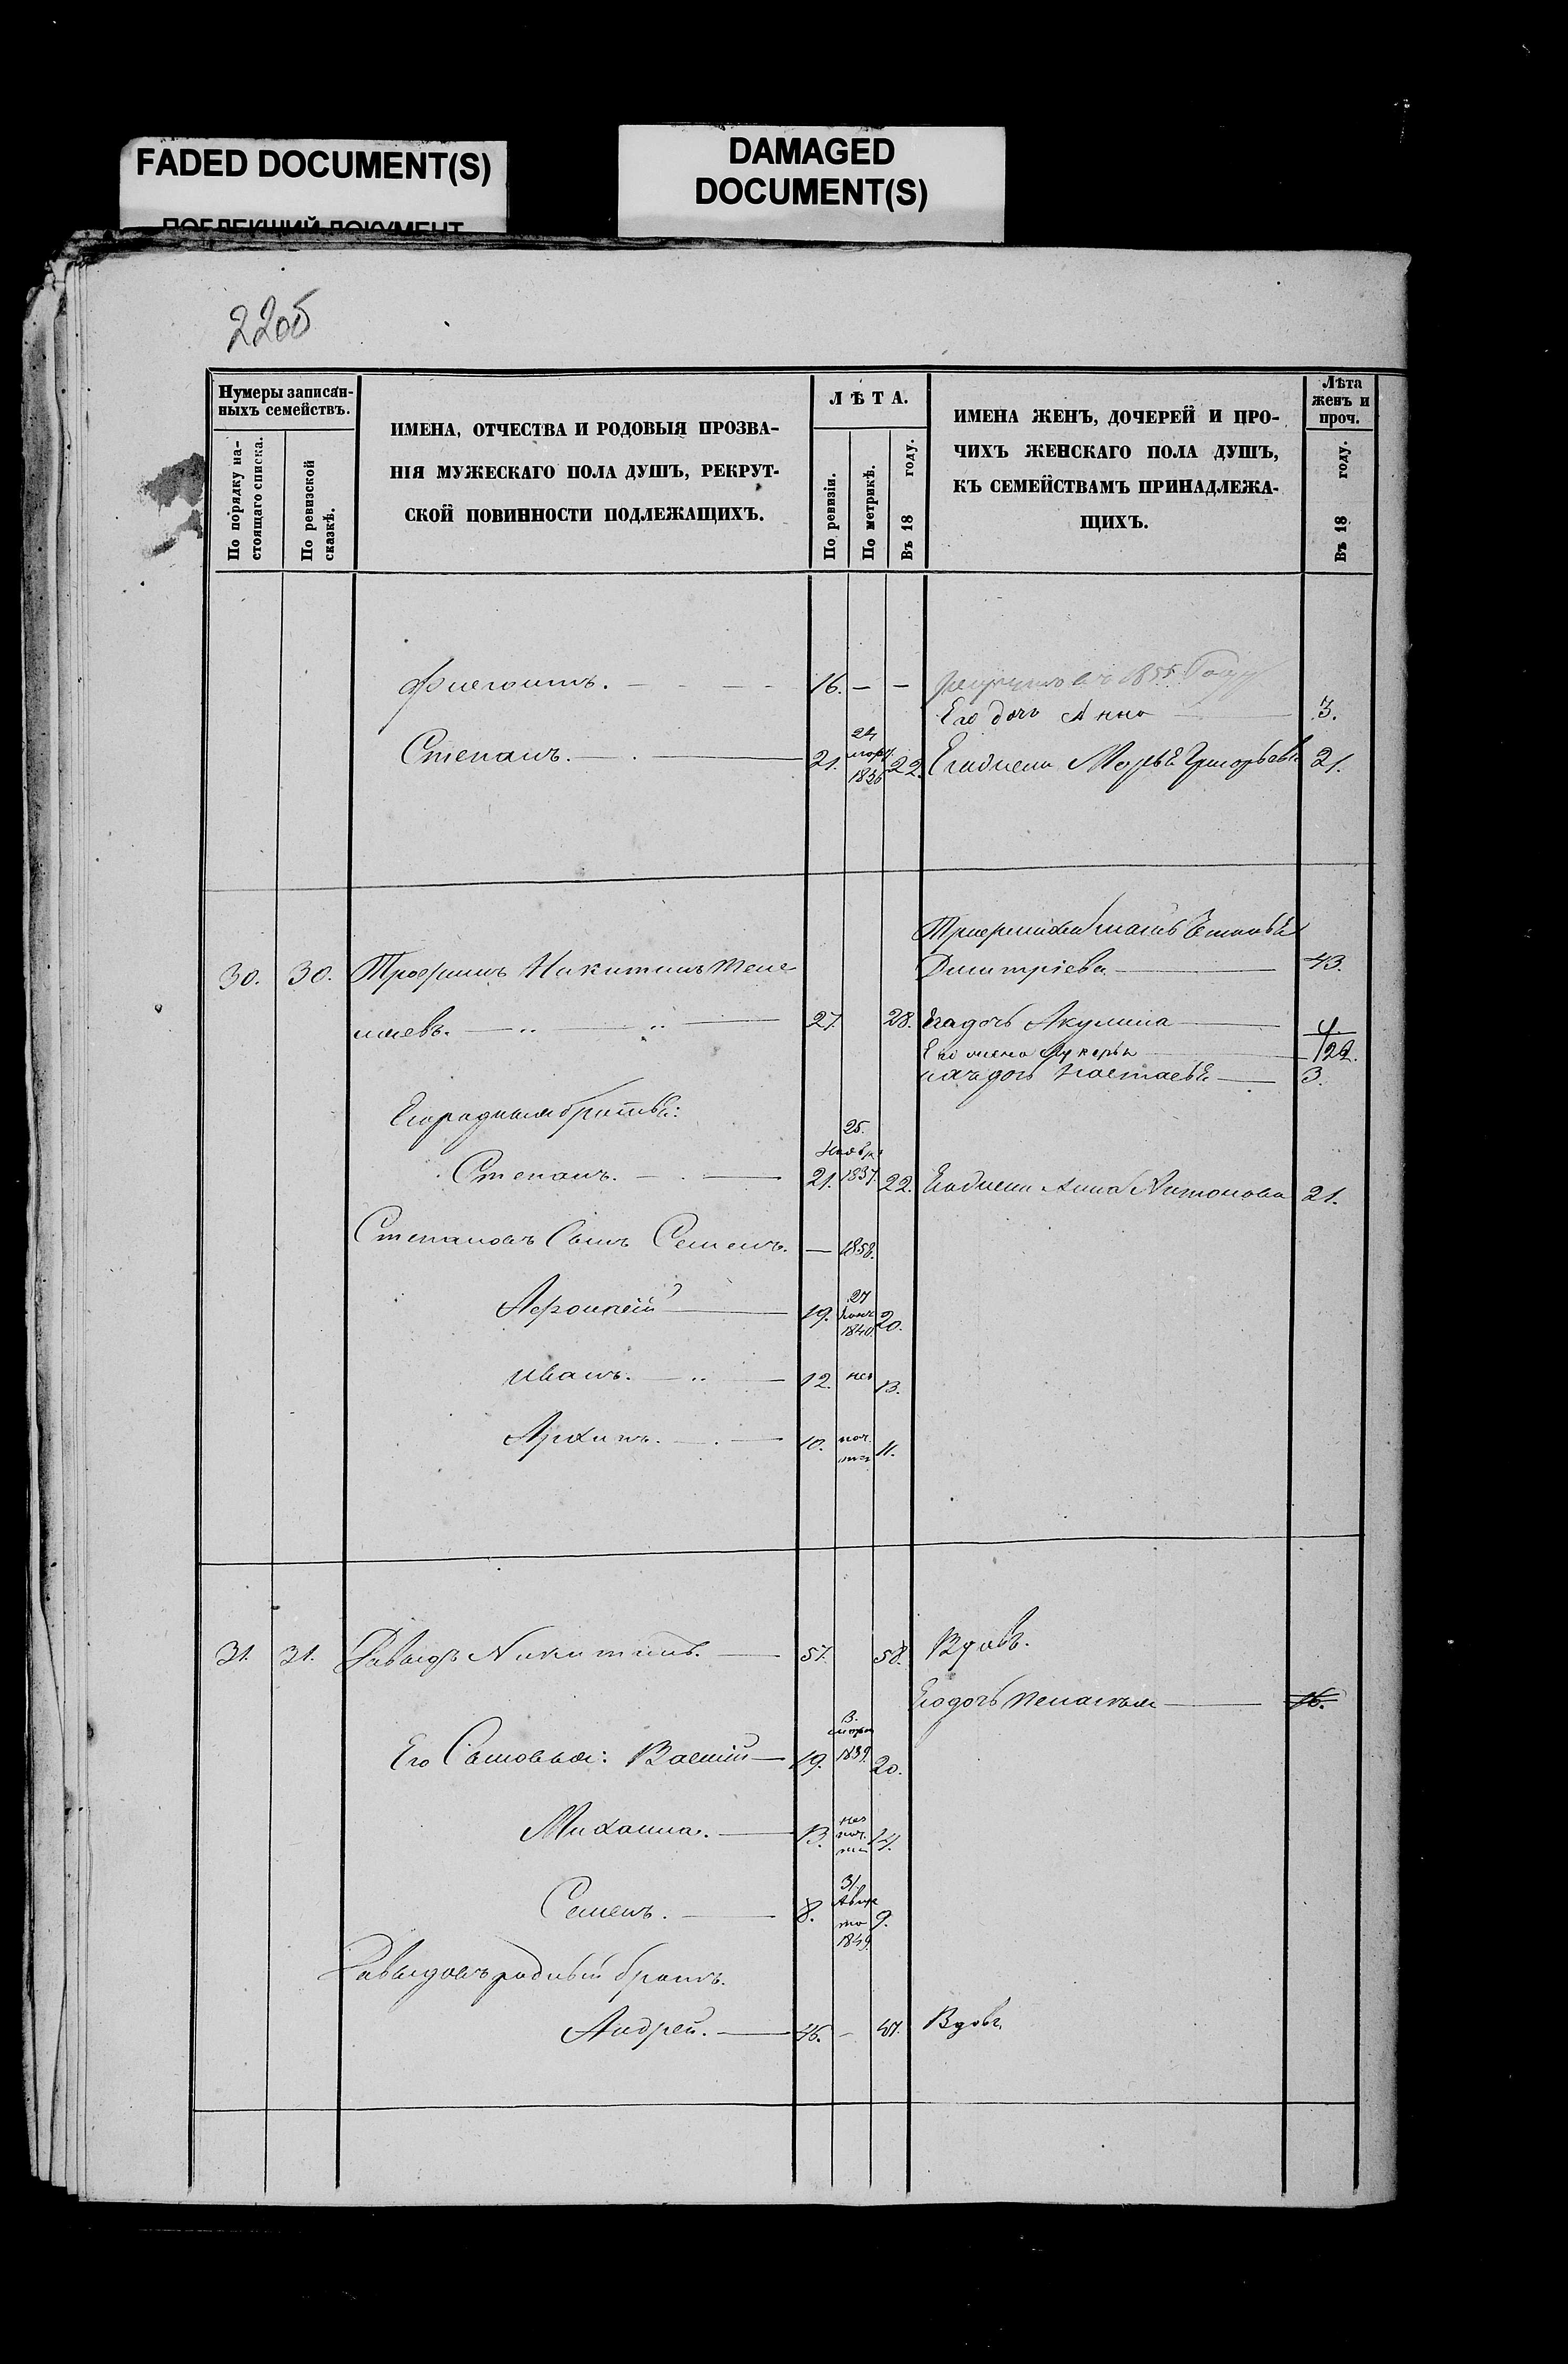 FADED DOCUMENT(S)
ПОБЛЕКШИЙ ДОКУМЕНТ
DAMAGED
DOCUMENT(S)
22об
Нумеры записан-
ныхъ семействъ.
По порядку на-
стоящаго списка.
По ревизской
сказкѣ.
ИМЕНА, ОТЧЕСТВА И РОДОВЫЯ ПРОЗВА-
НІЯ МУЖЕСКАГО ПОЛА ДУШЪ, РЕКРУТ-
СКОЙ ПОВИННОСТИ ПОДЛЕЖАЩИХЪ.
ЛѢТА.
По ревизіи.
По метрикѣ.
Въ 18 году.
ИМЕНА ЖЕНЪ, ДОЧЕРЕЙ И ПРО-
ЧИХЪ ЖЕНСКАГО ПОЛА ДУШЪ,
КЪ СЕМЕЙСТВАМЪ ПРИНАДЛЕЖА-
ЩИХЪ.
Лѣта
женъ и
проч.
Въ 18 году.
16. — — 1855 Году
Его дочь Анна 3.
Степанъ. 21. 24 март. 1836 22. Его жена Марья Григорьева 21.
30. 30. Трофимъ Никитинъ
27. 28.
Дмитріева 43.
Его дочь Акулина 4.
Его жена Лукерья 22.
дочь Настасья 3.
Его родныя братья:
Степанъ. 21. 25. Ноябр. 1837. 22. Его жена Анна Антонова 21.
Степановъ Сынъ Семенъ. — 1858.
Афонасій 19. 27 1840. 20.
Иванъ. 12. нез 13.
Архипъ. 10. 11.
31. 31. Давыдъ Никитинъ. 57. 58. Вдовъ.
Его дочь 16.
Его Сыновья: Василій 19. 13. 1839. 20.
Михаила. 13. 14.
Семенъ. 8. 31. Авгу ста 1849. 9.
Давыдовъ родный братъ.
Андрей. 46. — 47. Вдовъ.